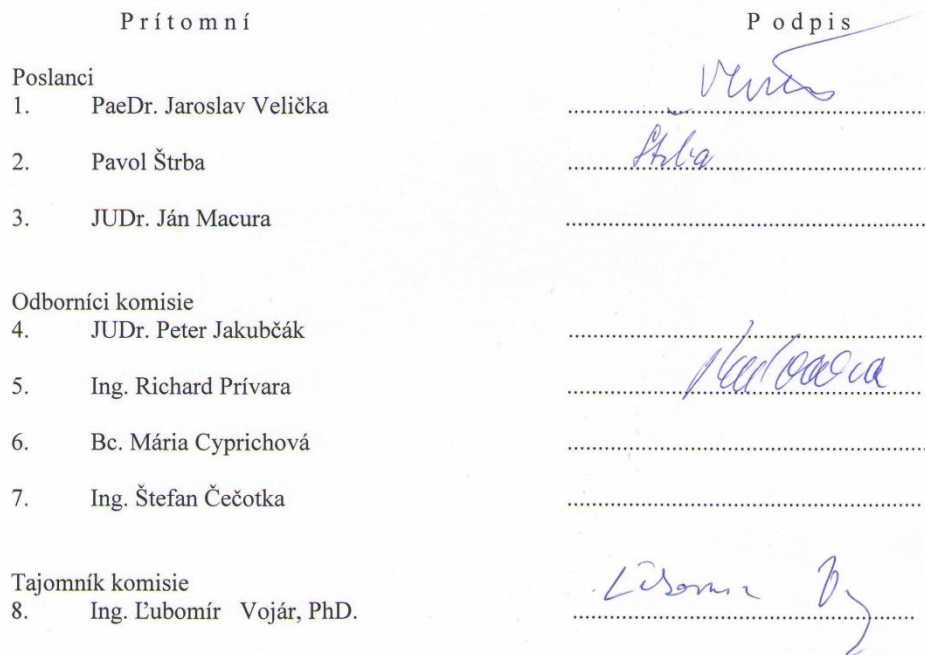 Prítomní Podpis
Poslanci
1. PaeDr. Jaroslav Velička ........................................
2. Pavol Štrba Štrba ........................................
3. JUDr. Ján Macura ........................................
Odborníci komisie
4. JUDr. Peter Jakubčák ........................................
5. Ing. Richard Prívara ........................................
6. Bc. Mária Cyprichová ........................................
7. Ing. Štefan Čečotka ........................................
Tajomník komisie
8. Ing. Ľubomír Vojár, PhD. ........................................